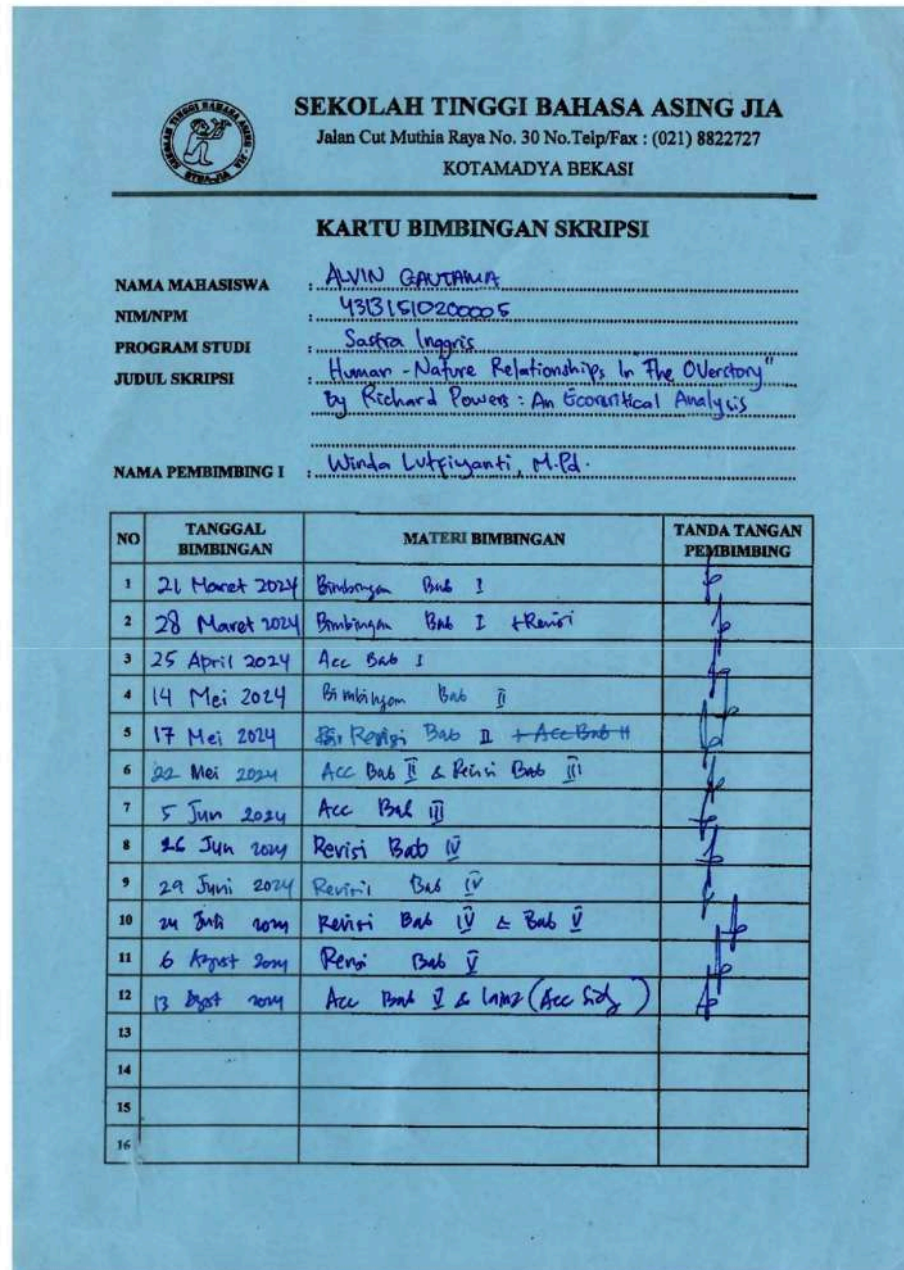 SEKOLAH TINGGI BAHASA ASING JIA
Jalan Cut Muthia Raya No. 30 No.Telp/Fax : (021) 8822727
KOTAMADYA BEKASI
SEKOLAH TINGGI BAHASA ASING - JIA
STBA-JIA
KARTU BIMBINGAN SKRIPSI
NAMA MAHASISWA : ALVIN GAUTAMA
NIM/NPM : 43131510200005
PROGRAM STUDI : Sastra Inggris
JUDUL SKRIPSI : Human - Nature Relationships In "The Overstory"
by Richard Powers : An Ecocritical Analysis
NAMA PEMBIMBING I : Winda Lutfiyanti, M.Pd.
NO TANGGAL BIMBINGAN MATERI BIMBINGAN TANDA TANGAN PEMBIMBING
1 21 Maret 2024 Bimbingan Bab I
2 28 Maret 2024 Bimbingan Bab I + Revisi
3 25 April 2024 Acc Bab I
4 14 Mei 2024 Bimbingan Bab II
5 17 Mei 2024 Revisi Bab II + Acc Bab II
6 22 Mei 2024 Acc Bab II & Revisi Bab III
7 5 Jun 2024 Acc Bab III
8 26 Jun 2024 Revisi Bab IV
9 29 Juni 2024 Revisi Bab IV
10 24 Juli 2024 Revisi Bab IV & Bab V
11 6 Agust 2024 Revisi Bab V
12 13 Agst 2024 Acc Bab V & (Acc Sidg)
13
14
15
16